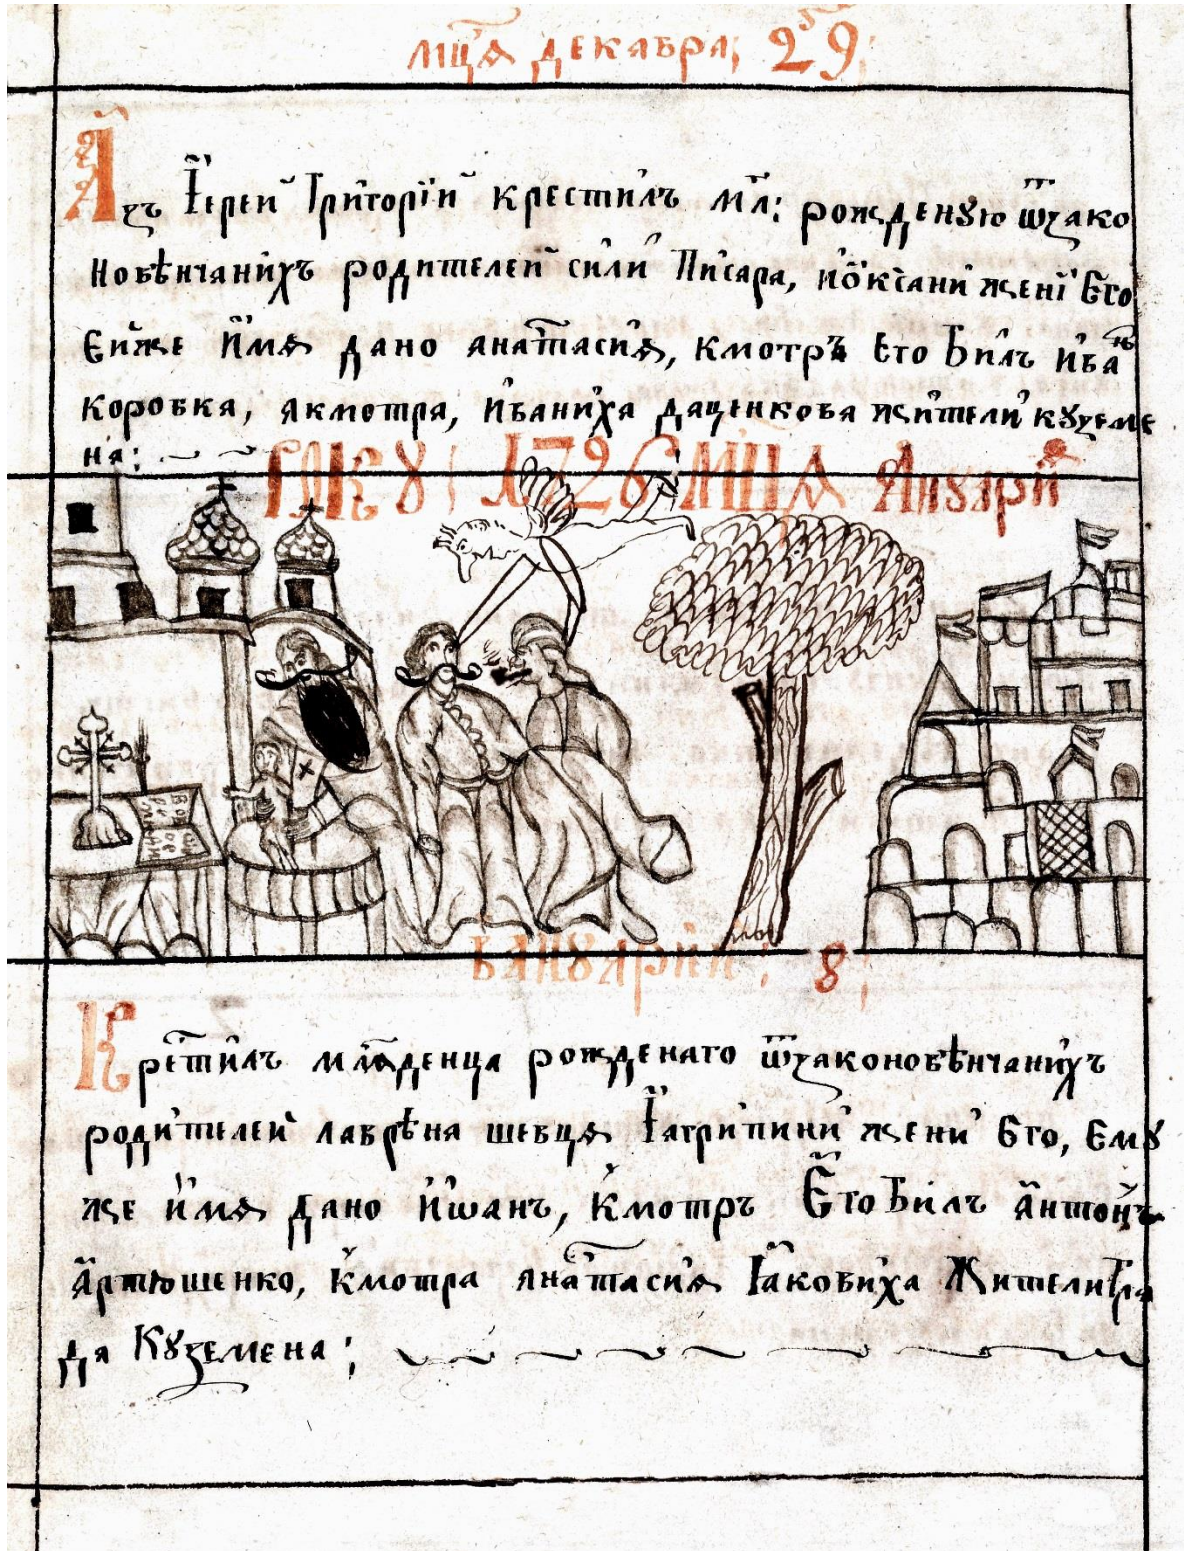 мц҃а декабра; 29;
Азъ Іерей Григорій крестилъ мл҃: рожденꙋю ѿзако
новѣнчанихъ родителей сили Писара, иѻксани жені Его
Ейже имѧ дано анатасиѧ, кмотръ его Билъ ива
коровка, акмотра, иваниха даценкова жители кꙋземе
на:
Рокꙋ 1726 Мц҃а Анꙋарій
Ванꙋарии: 8;
Крестилъ младенца рожденаго ѿзаконовѣнчанихъ
родителей лаврѣна шевцѧ Іагрипини жени Его, Емꙋ
же имѧ дано иѡанъ, кмотръ Его Билъ антонъ
артюшенко, кмотра анатасиѧ Іаковиха Жители Гра
да Кꙋземена;